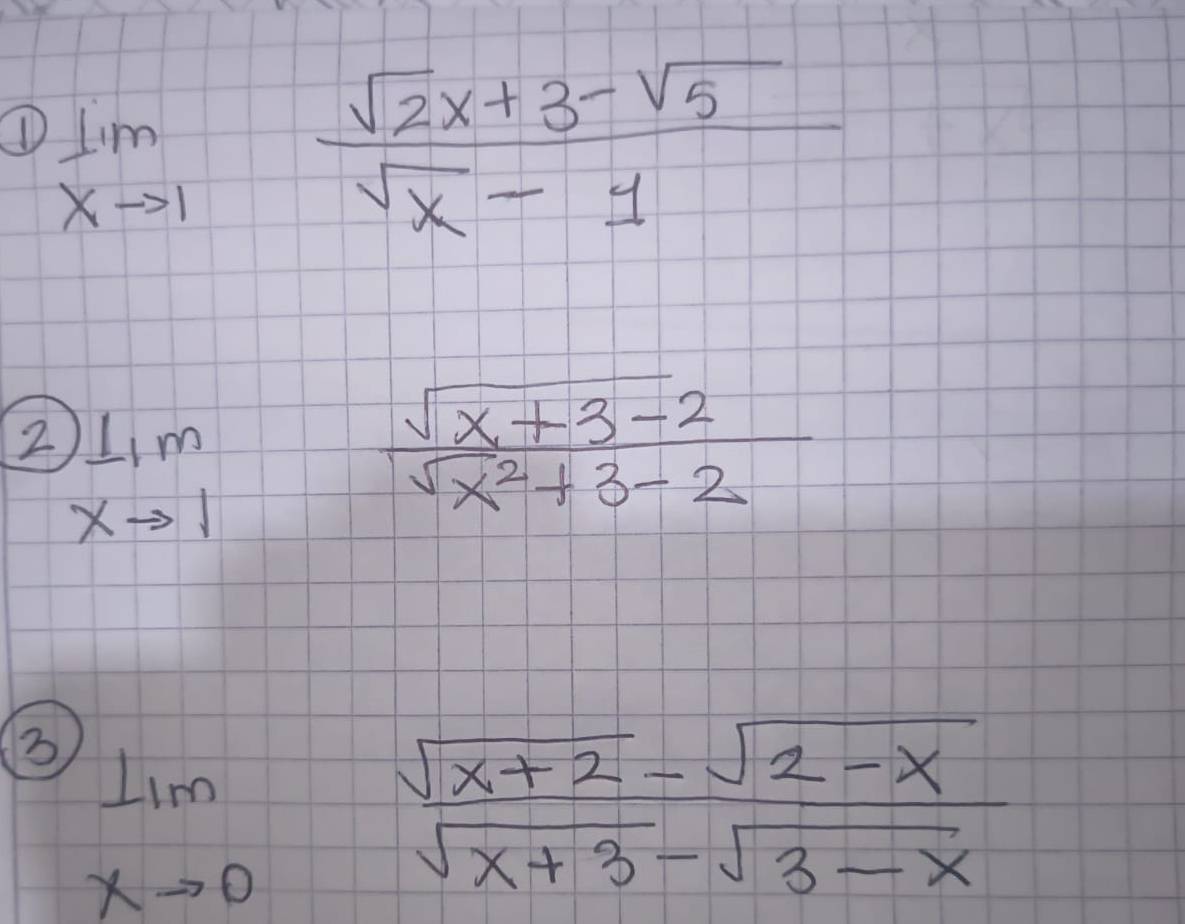 ① lim x→1 (√2x + 3 - √5) / (√x - 1)
② lim x→1 (√(x + 3) - 2) / (√x² + 3 - 2)
③ lim x→0 (√(x + 2) - √(2 - x)) / (√(x + 3) - √(3 - x))